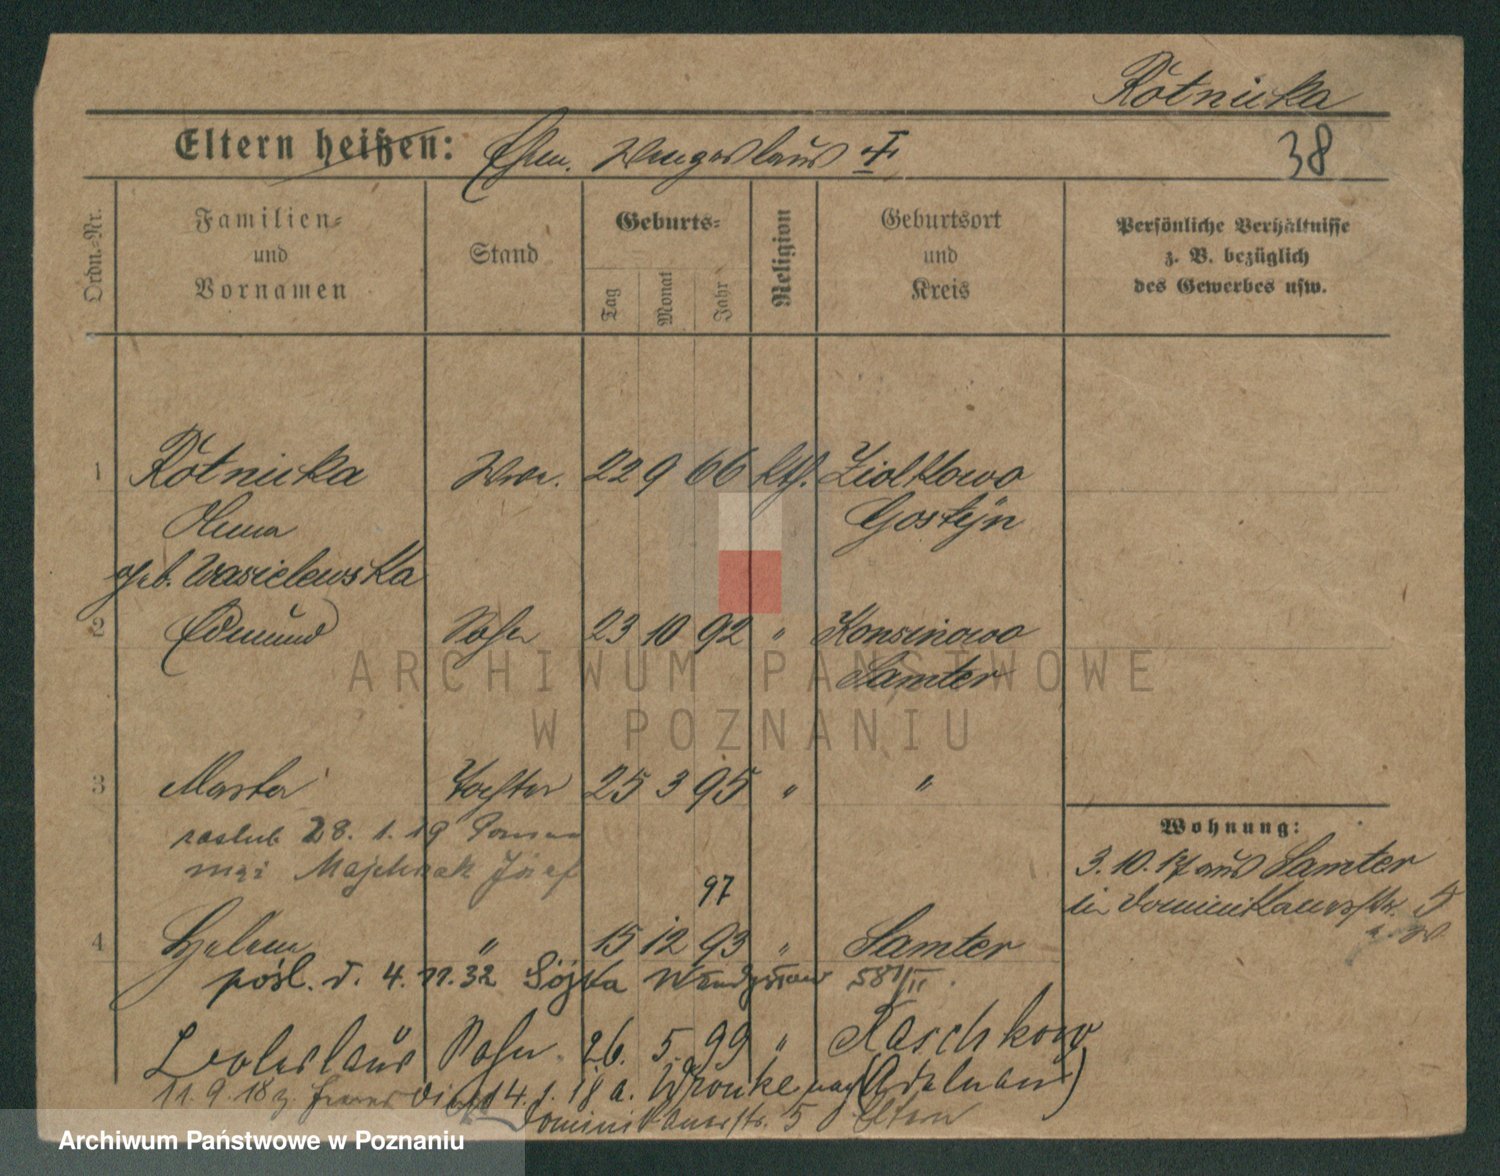 Rótnicka
Eltern heißen: Ehem. †
38
Ordn.-Nr.
Familien- und Vornamen
Stand
Geburts-
Tag Monat Jahr
Religion
Geburtsort und Kreis
Persönliche Verhältnisse z. B. bezüglich des Gewerbes usw.
1 Rótnicka Wwe. 22 9 66 kth. Ziolkowo
Gostyn
geb. Wasielewska
2 Edmund Sohn 23 10 92 " Konsinowo
Samter
3 Tochter 25 3 95 " "
zaślub. 28. 1. 19
mąż Majchrzak Józef
Wohnung:
3. 10. 17 aus Samter
in Dominikanerstr. 5
97
4 Helene " 15 12 93 " Samter
pośl. d. 4. 11. 32 Sójka 581/II.
Boleslaus Sohn 26. 5. 99 " Raschkow
(Adelnau)
11. 9. 18 14. 1. 18 a. Wronke
Dominikanerstr. 5 Eltern
ARCHIWUM PAŃSTWOWE
W POZNANIU
Archiwum Państwowe w Poznaniu